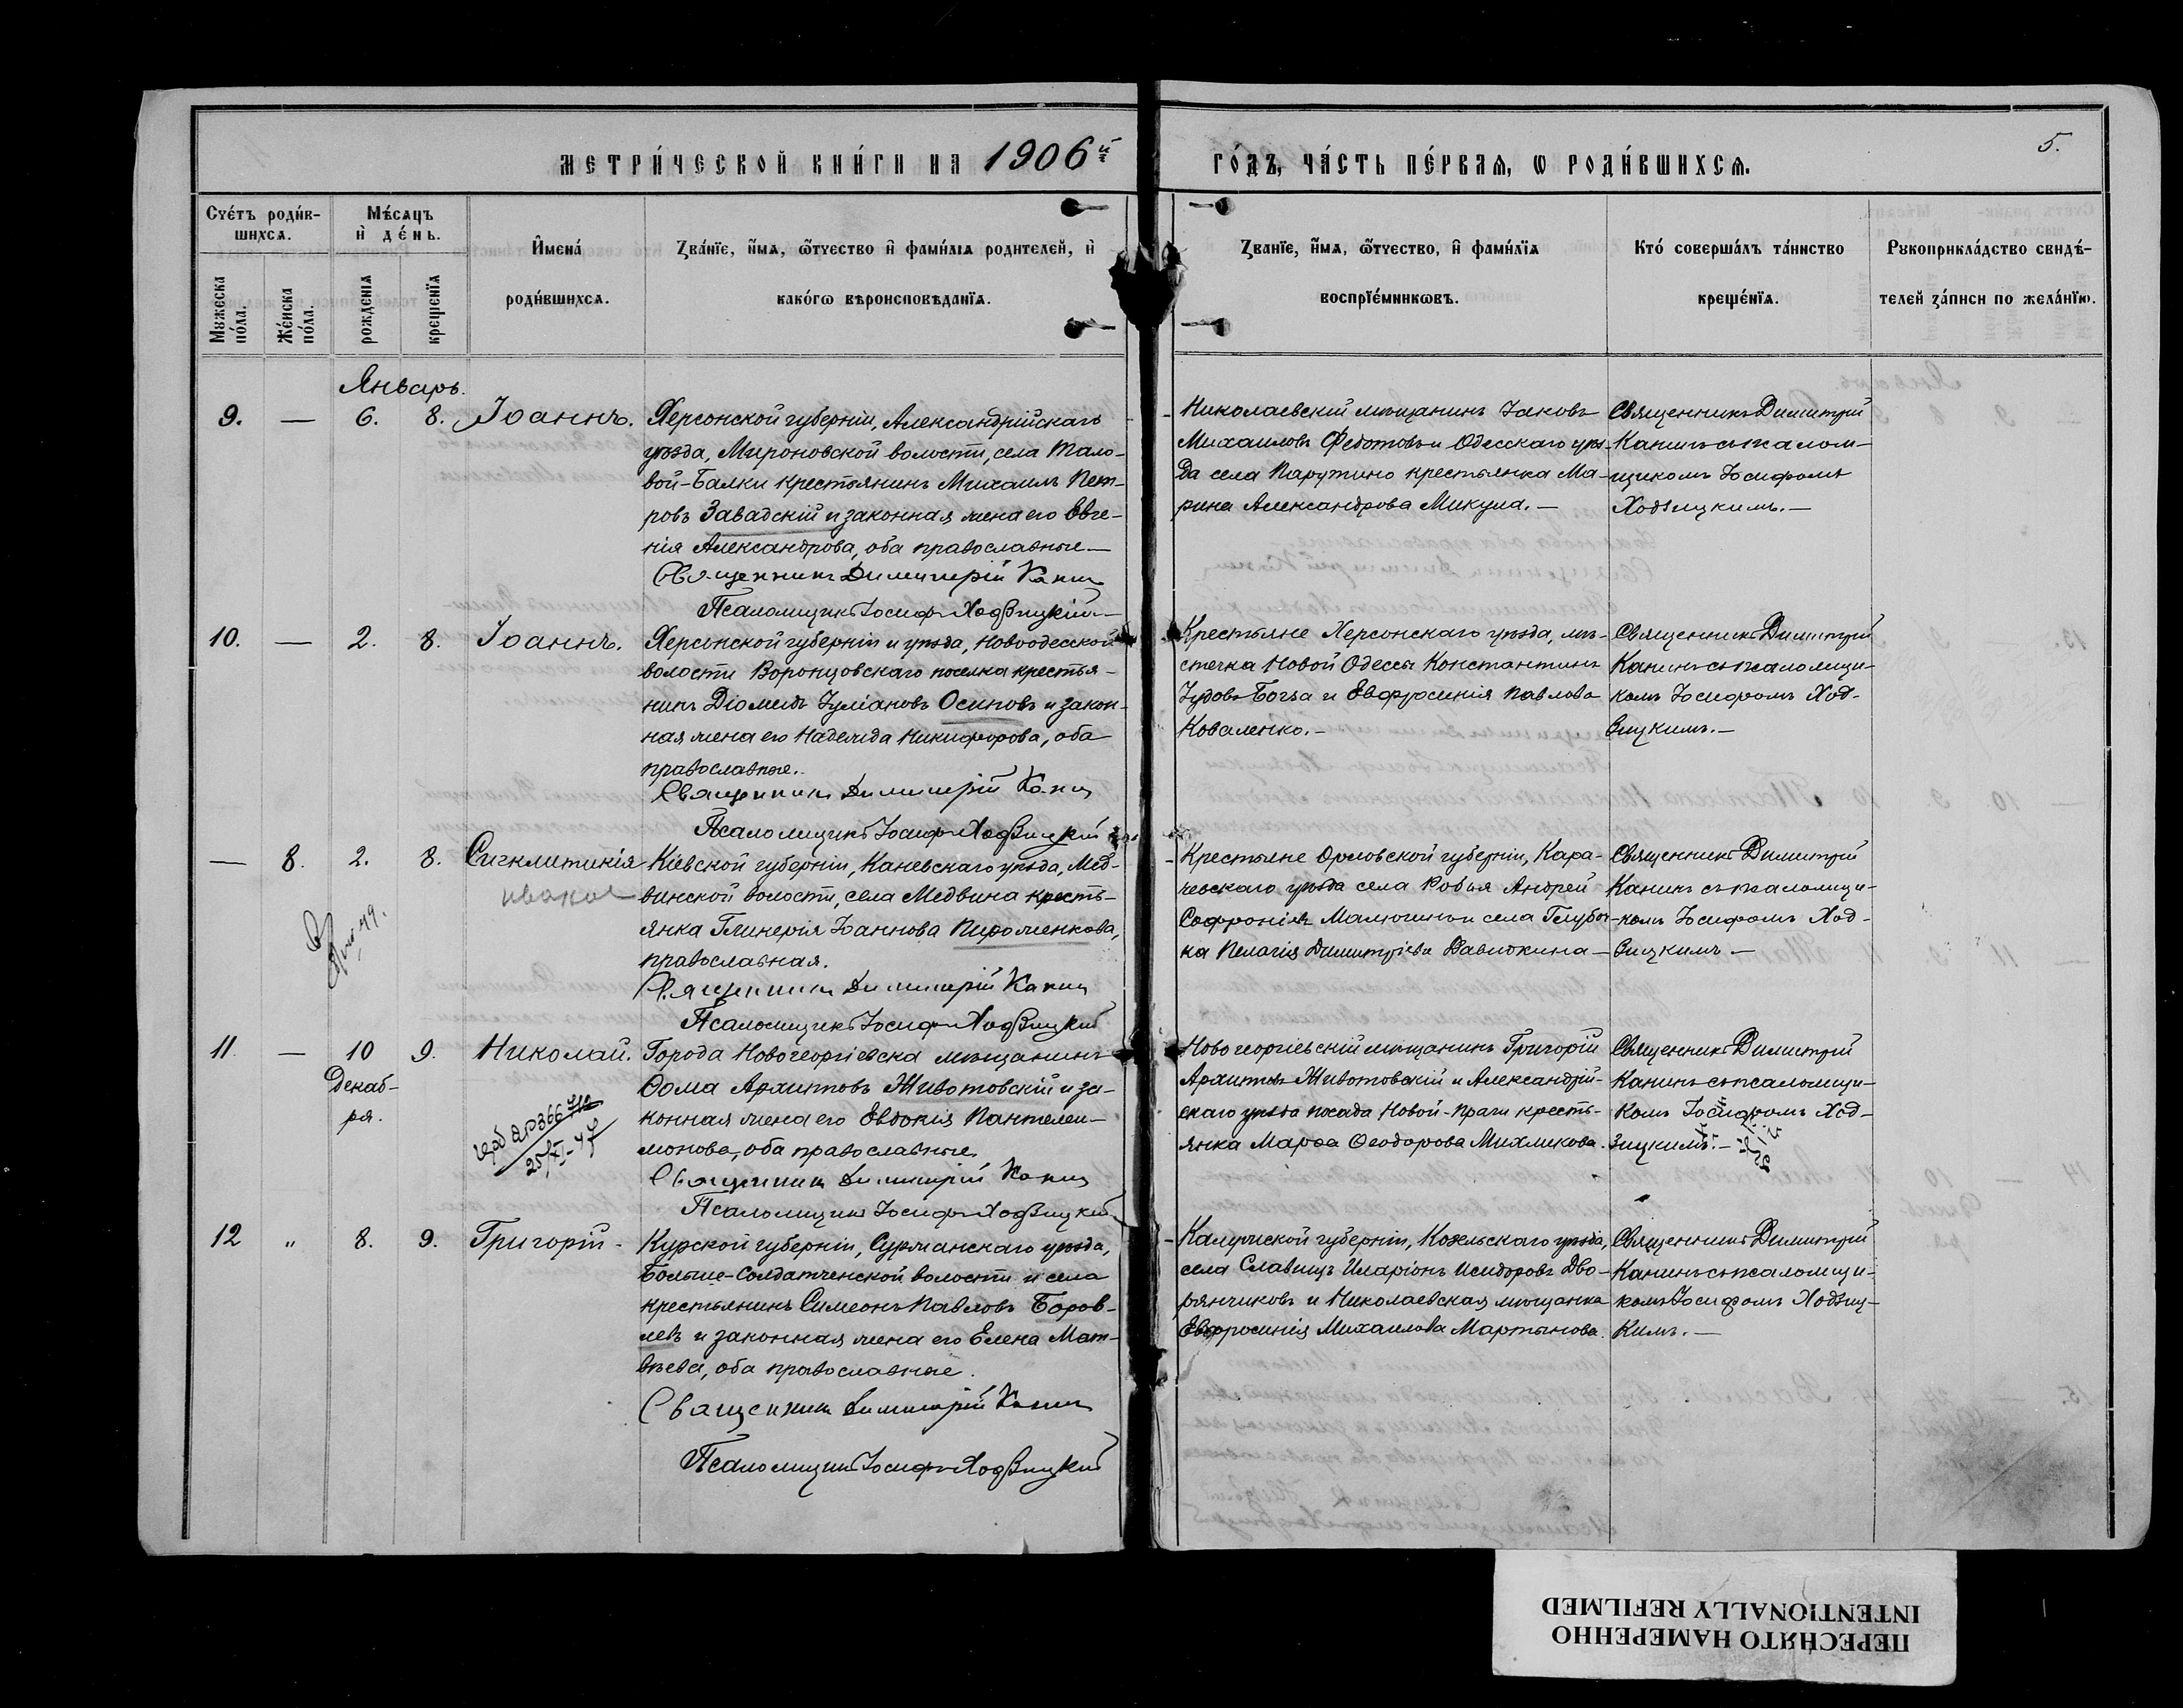 МЕТРИ́ЧЕСКОЙ КНИ́ГИ НА 1906й
ГО́ДЪ, ЧА́СТЬ ПЕ́РВАЯ, Ѡ РОДИ́ВШИХСЯ.
5.
Счéтъ роди́в-
шихсѧ.
Мѣ́сѧцъ
и҆ де́нь.
Мꙋжеска
по́ла.
Же́нска
по́ла.
рожденїѧ
крещенїѧ
И҆мена́
роди́вшихсѧ.
Зва́нїе, и҆́мѧ, ѻ҆́тчество и҆ фами́лїѧ родителей, и҆
како́гѡ вѣроисповѣданїѧ.
Званїе, и҆́мѧ, ѻ҆́тчество, и҆ фами́лїѧ
воспрїе́мникѡвъ.
Кто́ соверша́лъ та́инство
креще́нїѧ.
Рꙋкоприкла́дство свидѣ́-
телей за́писи по жела́нїю.
Январь.
9. — 6. 8. Іоаннъ.
Херсонской губерніи, Александрійскаго
уѣзда, Мироновской волости, села Тало-
вой-Балки крестьянинъ Михаилъ Пет-
ровъ Завадскій и законная жена его Евге-
нія Александрова, оба православные —
Священникъ Димитрій Канин
Псаломщикъ Іосифъ Ходзицкій
Николаевскій мѣщанинъ Іаковъ
Михаиловъ Федотовъ и Одесскаго уѣз-
да села Парутино крестьянка Ма-
рина Александрова Микула. —
Священникъ Димитрій
Канинъ съ псалом-
щикомъ Іосифомъ
Ходзицкимъ. —
10. — 2. 8. Іоаннъ.
Херсонской губерніи и уѣзда, Новоодесской
волости Воронцовскаго поселка крестья-
нинъ Діомидъ Іуліановъ Осиповъ и закон-
ная жена его Надежда Никифорова, оба
православные.
Священникъ Димитрій Канин
Псаломщикъ Іосифъ Ходзицкій
Крестьяне Херсонскаго уѣзда, мѣ-
стечка Новой Одессы Константинъ
Іудовъ Богза и Евфросинія Павлова
Коваленко. —
Священникъ Димитрій
Канинъ съ псаломщи-
комъ Іосифомъ Ход-
зицкимъ. —
— 8. 2. 8. Сигклитикія
Кіевской губерніи, Каневскаго уѣзда, Мед-
винской волости, села Медвина кресть-
янка Гликерія Іоаннова Пироженкова,
православная.
Священникъ Димитрій Канин
Псаломщикъ Іосифъ Ходзицкій
Крестьяне Орловской губерніи, Кара-
чевскаго уѣзда села Робья Андрей
Софроніевъ Малюгинъ и села Глубоч-
ка Пелагія Димитріева Вавилкина —
Священникъ Димитрій
Канинъ съ псаломщи-
комъ Іосифомъ Ход-
зицкимъ —
11. — 10 9. Николай.
Декаб-
ря.
25/XI-47
Города Новогеоргіевска мѣщанинъ
Ѳома Архиповъ Животовскій и за-
конная жена его Евдокія Пантелеи-
монова, оба православные.
Священникъ Димитрій Канин
Псаломщикъ Іосифъ Ходзицкій
Новогеоргіевскій мѣщанинъ Григорій
Архиповъ Животовскій и Александрій-
скаго уѣзда посада Новой-Праги кресть-
янка Марѳа Ѳеодорова Михликова.
Священникъ Димитрій
Канинъ съ псаломщи-
комъ Іосифомъ Ход-
зицкимъ. —
12 " 8. 9. Григорій -
Курской губерніи, Суджанскаго уѣзда,
Больше-Солдатченской волости и села
крестьянинъ Симеонъ Павловъ Боров-
левъ и законная жена его Елена Мат-
вѣева, оба православные.
Священникъ Димитрій Канин
Псаломщикъ Іосифъ Ходзицкій
Калужской губерніи, Козельскаго уѣзда,
села Славищъ Иларіонъ Исидоровъ Дво-
рянчиковъ и Николаевская мѣщанка
Евфросинія Михаилова Мартынова.
Священникъ Димитрій
Канинъ съ псаломщи-
комъ Іосифомъ Ходзиц-
кимъ. —
ПЕРЕСНЯТО НАМЕРЕННО
INTENTIONALLY REFILMED